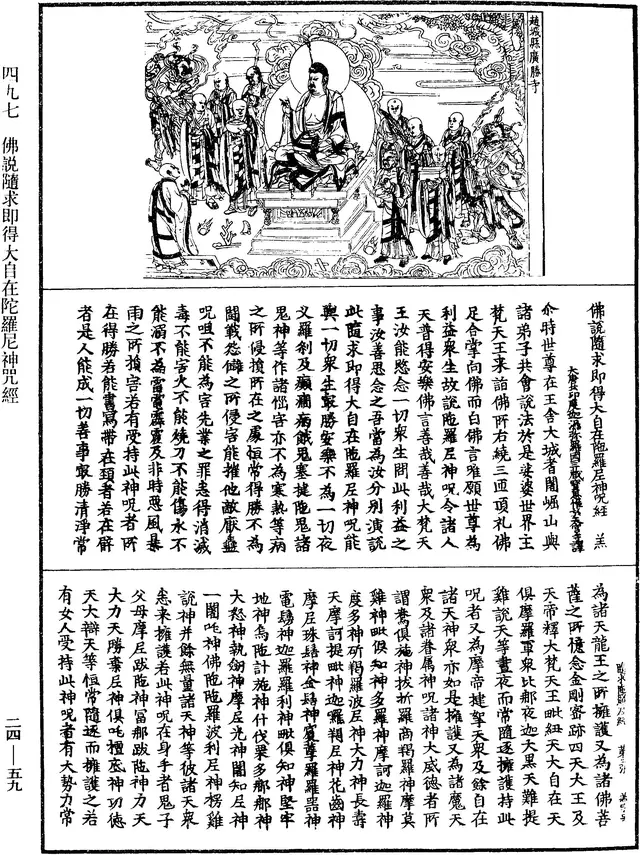 趙城縣廣勝寺
四九七　佛說隨求即得大自在陀羅尼神咒經
二四—五九
佛說隨求即得大自在陁羅尼神呪經　羔
尒時世尊在王舍大城耆闍崛山與
諸弟子共會說法於是娑婆世界主
梵天王来詣佛所右繞三帀頂礼佛
足合掌向佛而白佛言唯願世尊為
利益衆生故說陁羅尼神呪令諸人
天普得安樂佛言善哉善哉大梵天
王汝能愍念一切衆生問此利益之
事汝善思念之吾當為汝分別演說
此隨求即得大自在陁羅尼神呪能
與一切衆生冣勝安樂不為一切夜
义羅剎及癲癇病餓鬼塞揵陁鬼諸
鬼神等作諸惱害亦不為寒熱等病
之所侵損所在之處恒常得勝不為
鬪戰怨讎之所侵害能摧他敵厭蠱
呪咀不能為害先業之罪悉得消滅
毒不能害火不能燒刀不能傷水不
能溺不為雷電霹靂及非時惡風暴
雨之所損害若有受持此神呪者所
在得勝若能書寫帶在頚者若在臂
者是人能成一切善事冣勝清淨常
為諸天龍王之所擁護又為諸佛菩
薩之所憶念金剛密跡四天大王及
天帝釋大梵天王毗紐天大自在天
俱摩羅軍衆比那夜迦大黒天難提
雞說天等晝夜而常隨逐擁護持此
呪者又為摩帝揵挐天衆及餘自在
諸天神衆亦如是擁護又為諸魔天
衆及諸眷属神呪諸神大威德者所
謂鴦俱施神拔折羅商羯羅神摩莫
雞神毗俱知神多羅神摩訶迦羅神
度多神斫羯羅波尼神大力神長壽
天摩訶提毗神迦羅羯尼神花齒神
摩尼珠髻神金髻神賔蓽羅羅器神
電鬘神迦羅羅利神毗俱知神堅牢
地神烏陁計施神什伐栗多那那神
大怒神執劒神摩尼光神闍知尼神
一闍吒神佛陁陁羅波利尼神楞雞
說神并餘無量諸天神等彼諸天衆
悉来擁護若此神呪在身手者鬼子
父母摩尼跋陁神冨那跋陁神力天
大力天勝棄尼神俱吒檀底神功德
天大辯天等恒常隨逐而擁護之若
有女人受持此神呪者有大勢力常